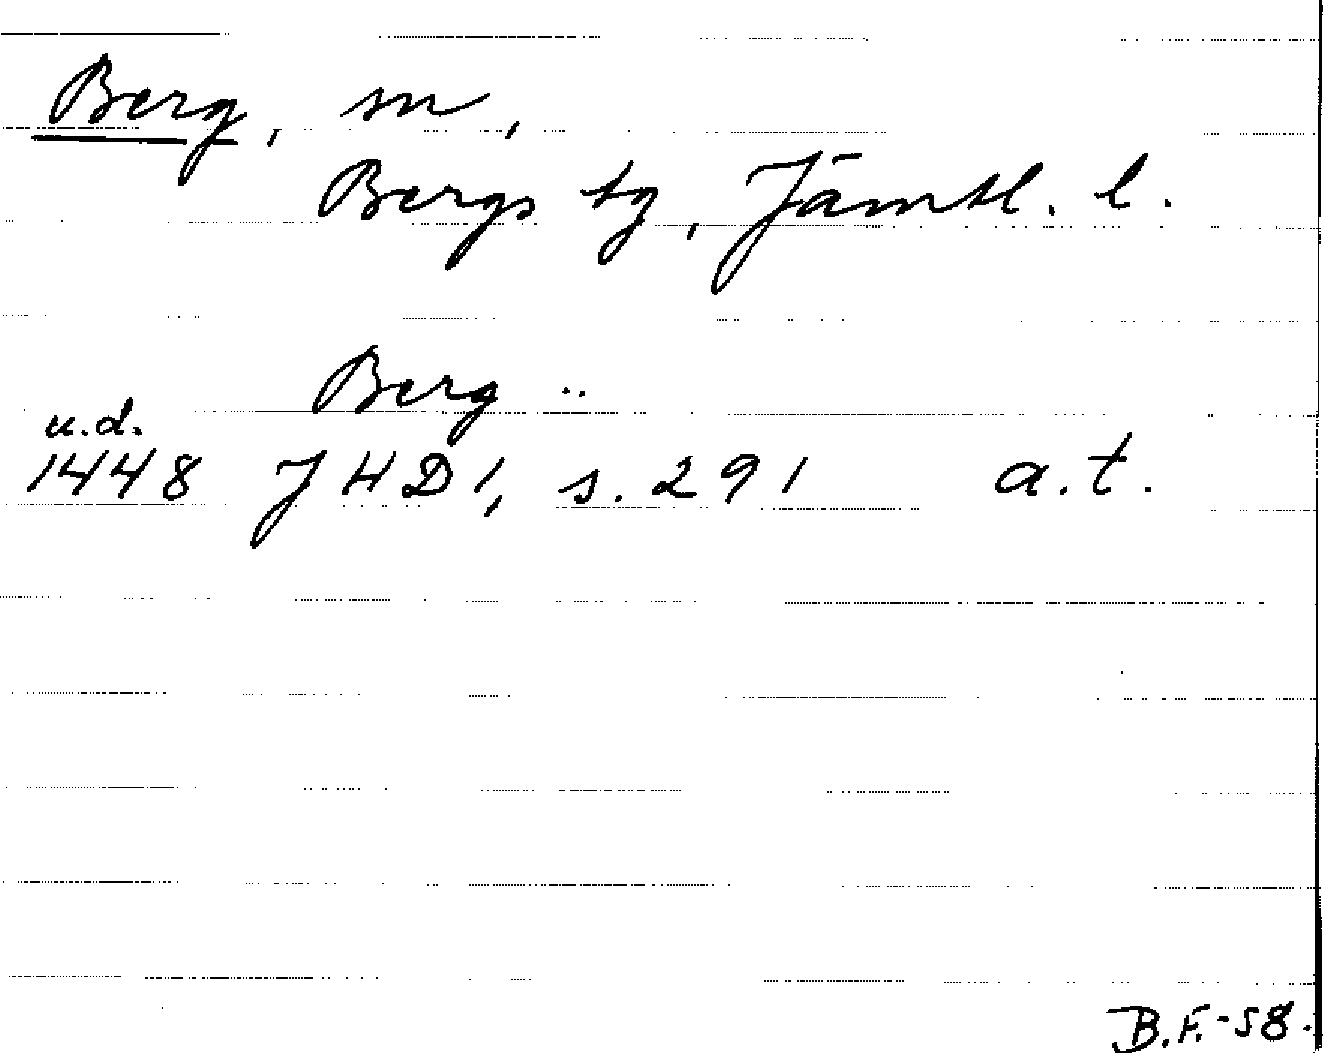 Berg, sn,
Bergs tg, Jämtl. l.
Berg ..
u.d.
1448 JHD 1, s. 291 a.t.
B.F.-58.